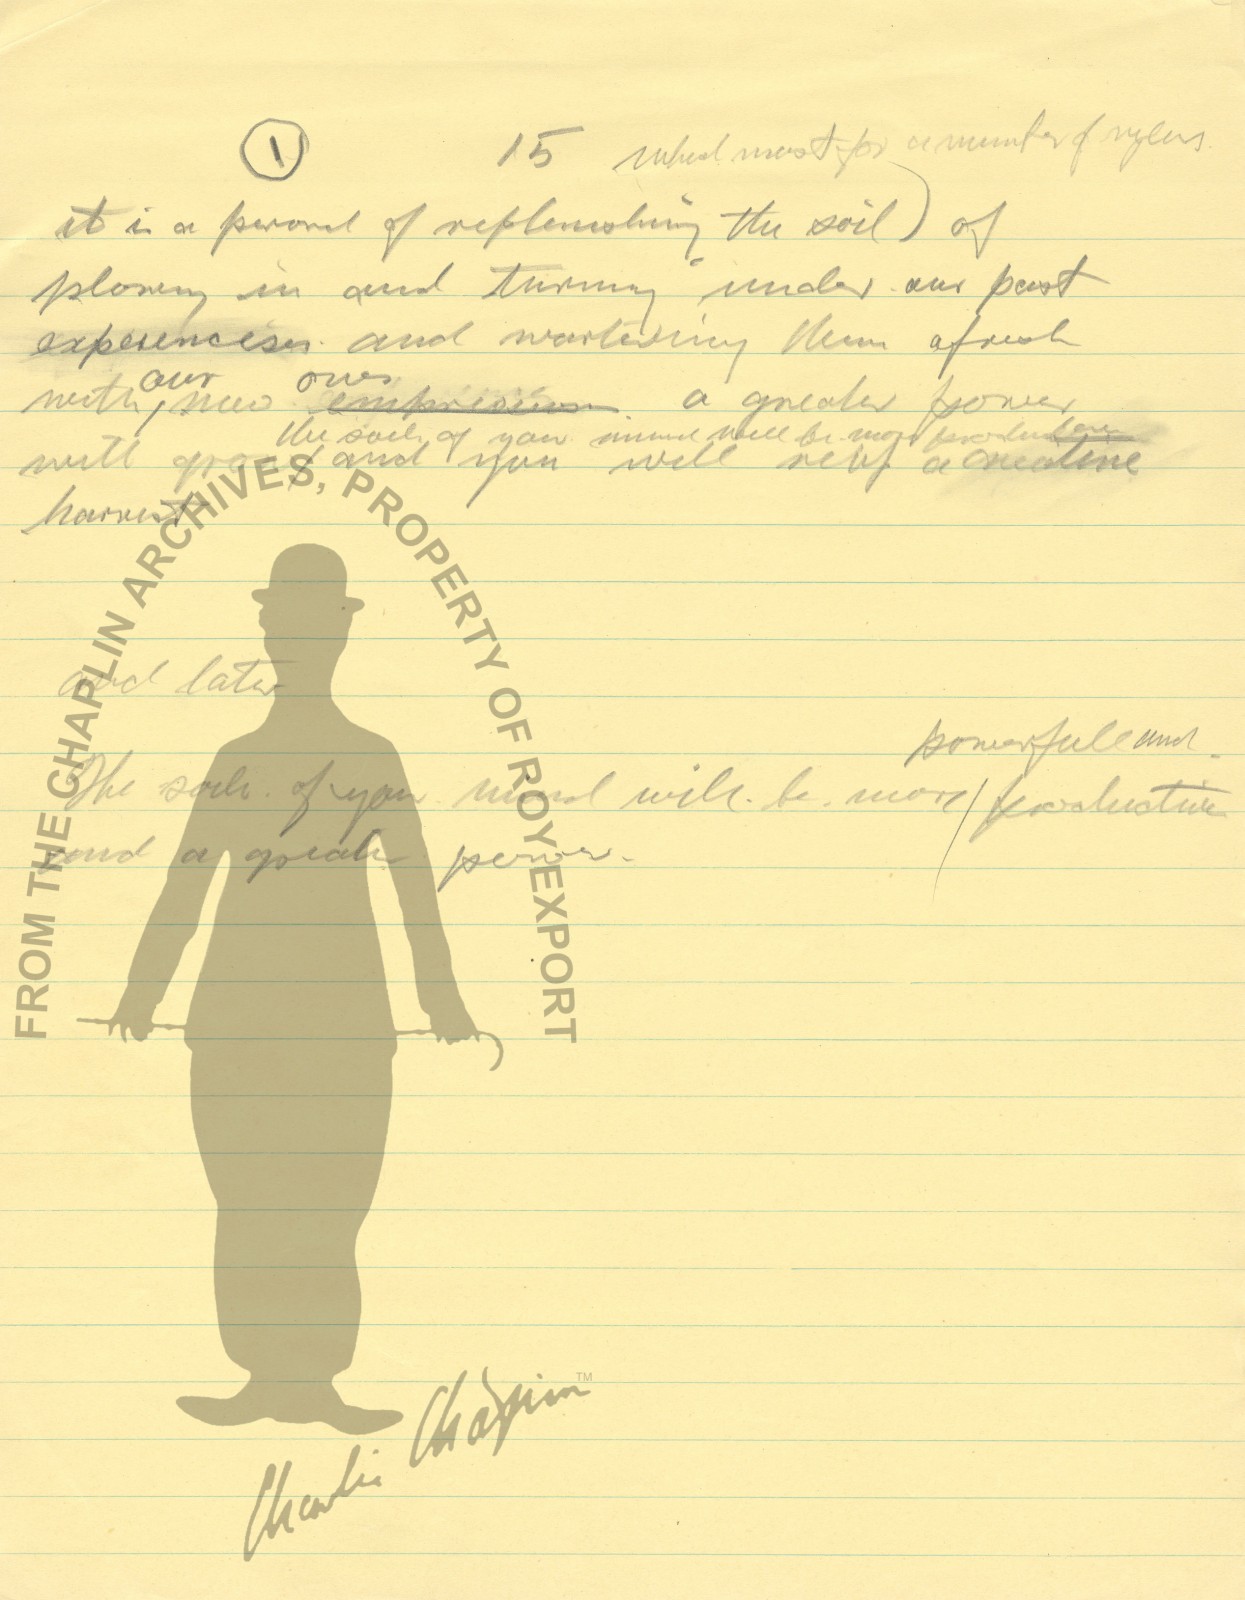 1
15
which must for a number of
it is a peroid of replenishing the soil) of
plowing in and turning under our past
experiences and wartering them afresh
our ones
with, new a greater power
the soil of your mind will be more productive
will grow and you will reap a creative
harvest
and later
powerfull and
The soil of your mind will be more / productive
and a greater power.
FROM THE CHAPLIN ARCHIVES, PROPERTY OF ROY EXPORT
Charlie Chaplin TM